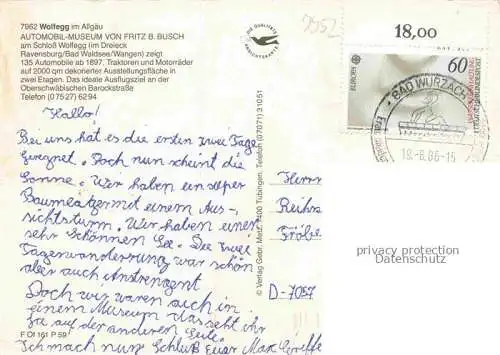 7962 Wolfegg im Allgäu
AUTOMOBIL-MUSEUM VON FRITZ B. BUSCH
am Schloß Wolfegg (im Dreieck
Ravensburg/Bad Waldsee/Wangen) zeigt
135 Automobile ab 1897. Traktoren und Motorräder
auf 2000 qm dekorierter Ausstellungsfläche in
zwei Etagen. Das ideale Ausflugsziel an der
Oberschwäbischen Barockstraße
Telefon (0 75 27) 62 94
Hallo!
Bei uns hat es die ersten zwei Tage
geregnet. Doch nun scheint die
Sonne. Wir haben ein
mit einem Aus-
sichtsturm. Wir haben einen
sehr schönnen See. Die
Tageswanderung war schön
aber auch Anstrengent
Doch wir waren auch in
einem Museum das seht ihr
ja auf der anderen Seite.
Ich mach nun Schluß Euer Max
F Ol 161 P 59
© Verlag Gebr. Metz, 7400 Tübingen, Telefon (07071) 31051
DIE QUALITÄTS
ANSICHTSKARTE
7952
18,00
60
EUROPA
DEUTSCHE BUNDESPOST
BAD WURZACH
19.-6.86-15
Herrn
D-7057
privacy protection
Datenschutz